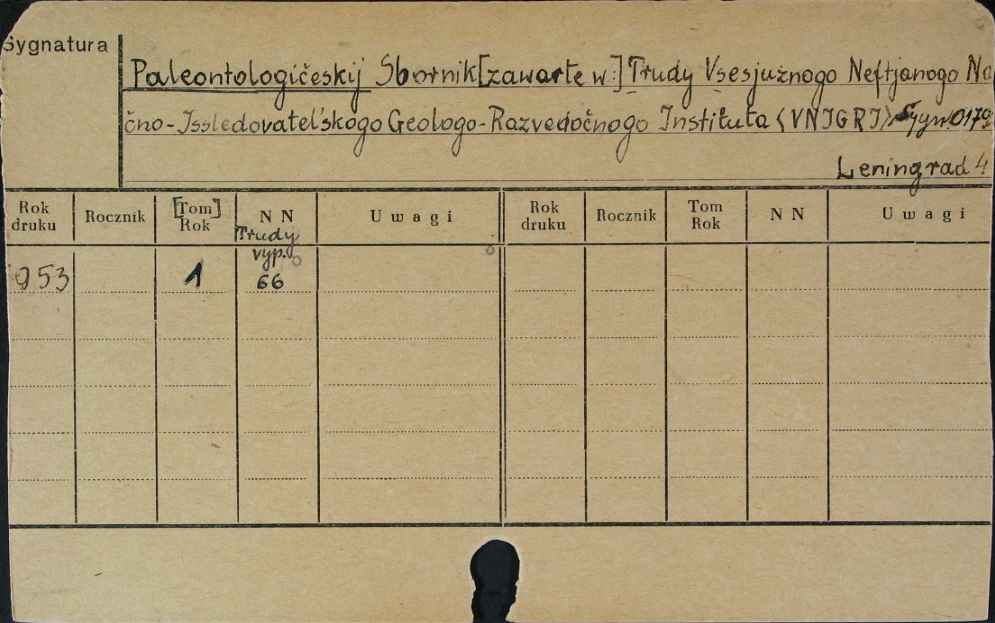 Sygnatura
Paleontologičeskij Sbornik [zawarte w:] Trudy Vsesjuznogo Neftjanogo Na
čno-Issledovatel'skogo Geologo-Razvedočnogo Instituta <VNIGRI> Sygn. 0179
Leningrad 4
Rok druku Rocznik [Tom] Rok NN Trudy vyp. Uwagi Rok druku Rocznik Tom Rok NN Uwagi
953 1 66